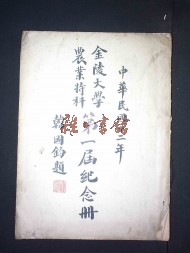 中華民國二年
金陵大學
農業特科
第一屆紀念冊
韓國鈞題